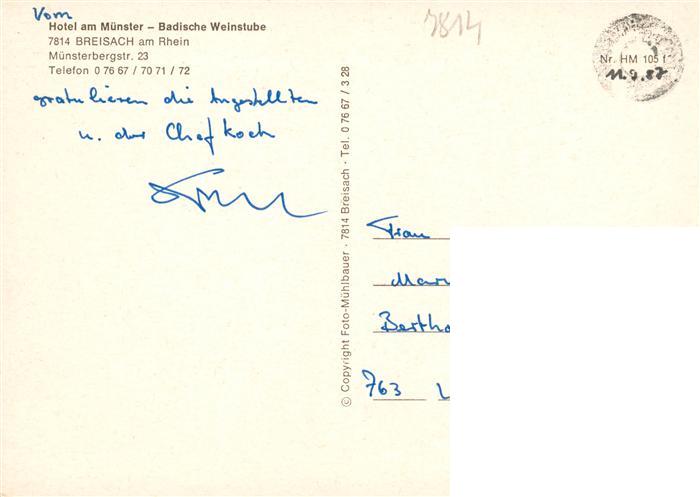 Vom
Hotel am Münster – Badische Weinstube
7814 BREISACH am Rhein
Münsterbergstr. 23
Telefon 0 76 67 / 70 71 / 72
gratulieren die Angestellten
u. der Chefkoch
7814
Nr. HM 105 f
11.9.87
© Copyright Foto-Mühlbauer · 7814 Breisach · Tel. 0 76 67 / 3 28
Frau
763